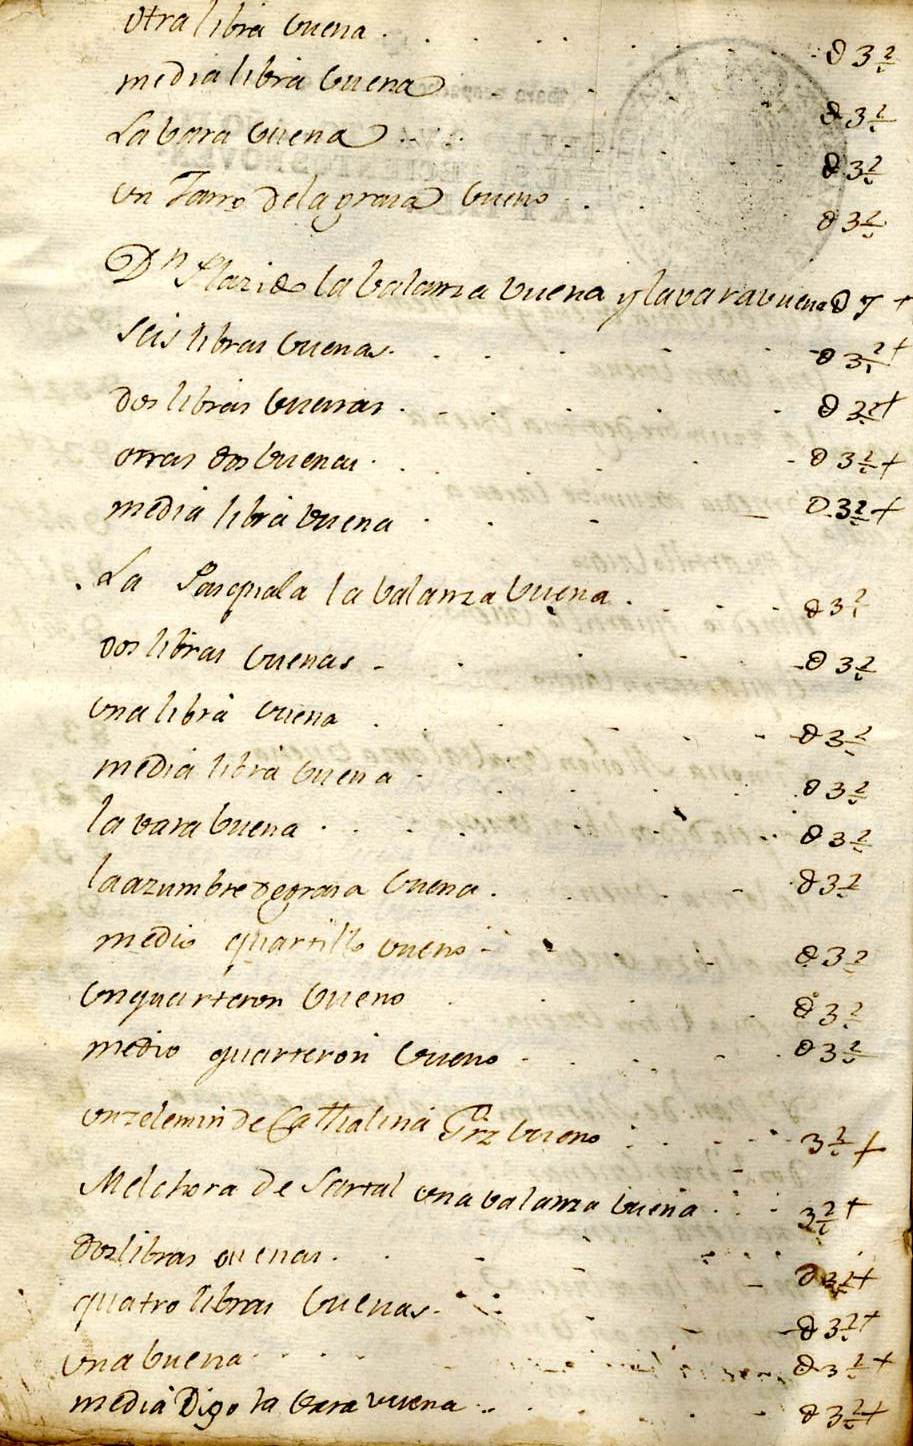 otra libra buena . . . . . . . ∂ 3 2/
media libra buena . . . . ∂ 3 2/
La bara buena . . . . ∂ 3 2/
un Jarro de la grasa bueno . . ∂ 3 2/
Dn la balanza buena y la vara buena ∂ 7 +
seis libras buenas . . . . ∂ 3 2/ +
dos libras buenas . . . . ∂ 3 2/ +
otras dos buenas . . . . ∂ 3 2/ +
media libra buena . . . ∂ 3 2/ +
La Pasquala la balanza buena . . . . ∂ 3 2/
dos libras buenas . . . . ∂ 3 2/
una libra buena . . . . ∂ 3 2/
media libra buena . . . . ∂ 3 2/
la vara buena . . . . ∂ 3 2/
la azumbre de grasa buena . . . ∂ 3 2/
medio quartillo bueno . . . ∂ 3 2/
un quarteron bueno . . . ∂ 3 2/
medio quarteron bueno . . . ∂ 3 2/
un zelemin de Cathalina Prz bueno . . . 3 2/ +
Melchora de Sartal una valanza buena . . . 3 2/ +
dos libras buenas . . . ∂ 3 2/ +
quatro libras buenas . . . ∂ 3 2/ +
una buena . . . ∂ 3 2/ +
media Digo la bara buena . . ∂ 3 2/ +